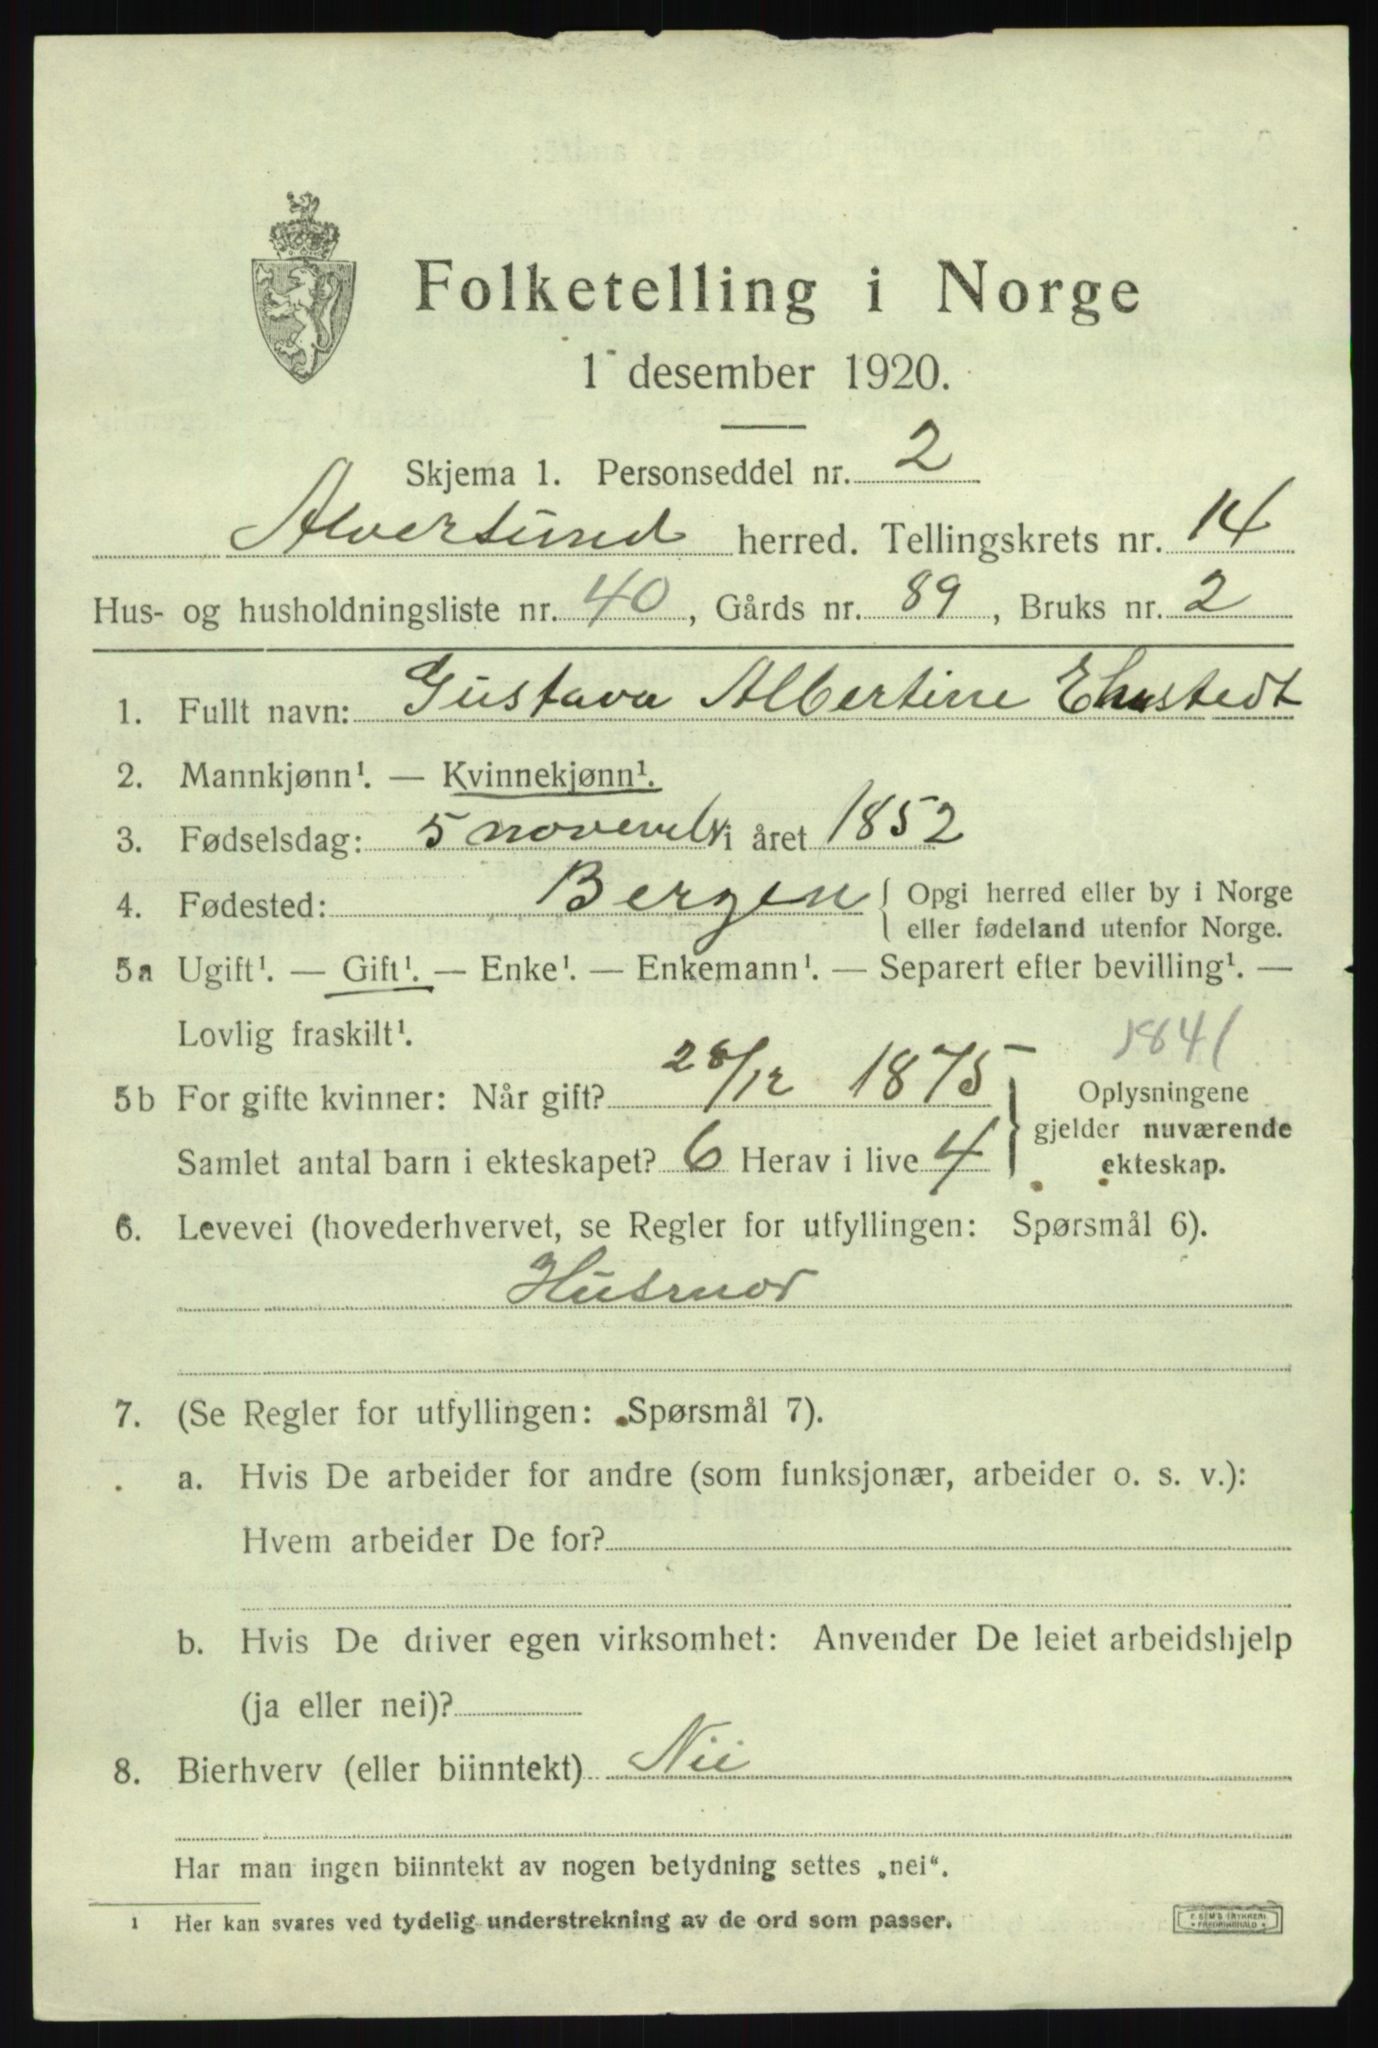 Folketelling i Norge
1 desember 1920.
Skjema 1. Personseddel nr. 2
Alversund herred. Tellingskrets nr. 14
Hus- og husholdningsliste nr. 40, Gårds nr. 89, Bruks nr. 2
1. Fullt navn: Gustava Albertine
2. Mannkjønn¹. — Kvinnekjønn¹.
3. Fødselsdag: 5 november i året 1852
4. Fødested: Bergen { Opgi herred eller by i Norge
eller fødeland utenfor Norge.
5a Ugift¹. — Gift¹. — Enke¹. — Enkemann¹. — Separert efter bevilling¹. —
Lovlig fraskilt¹.
1841
5b For gifte kvinner: Når gift? 28/12 1875 } Oplysningene
gjelder nuværende
Samlet antal barn i ekteskapet? 6 Herav i live 4 ekteskap.
6. Levevei (hovederhvervet, se Regler for utfyllingen: Spørsmål 6).
Husmor
7. (Se Regler for utfyllingen: Spørsmål 7).
a. Hvis De arbeider for andre (som funksjonær, arbeider o. s. v.):
Hvem arbeider De for?
b. Hvis De driver egen virksomhet: Anvender De leiet arbeidshjelp
(ja eller nei)?
8. Bierhverv (eller biinntekt) Nei
Har man ingen biinntekt av nogen betydning settes „nei“.
¹ Her kan svares ved tydelig understrekning av de ord som passer.